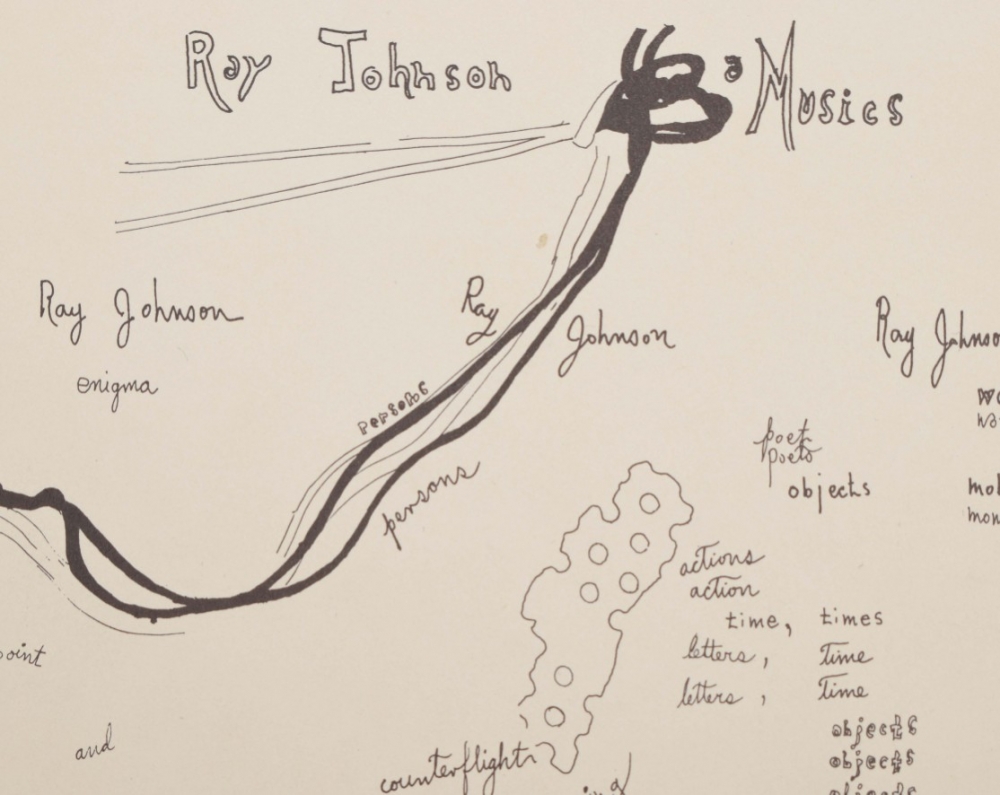 Ray Johnson
a Musics
Ray Johnson
Ray
Johnson
Ray Johnso
enigma
persons
persons
poet
poets
objects
actions
action
time, times
letters, Time
letters, Time
objects
objects
objects
oint
and
counterflight